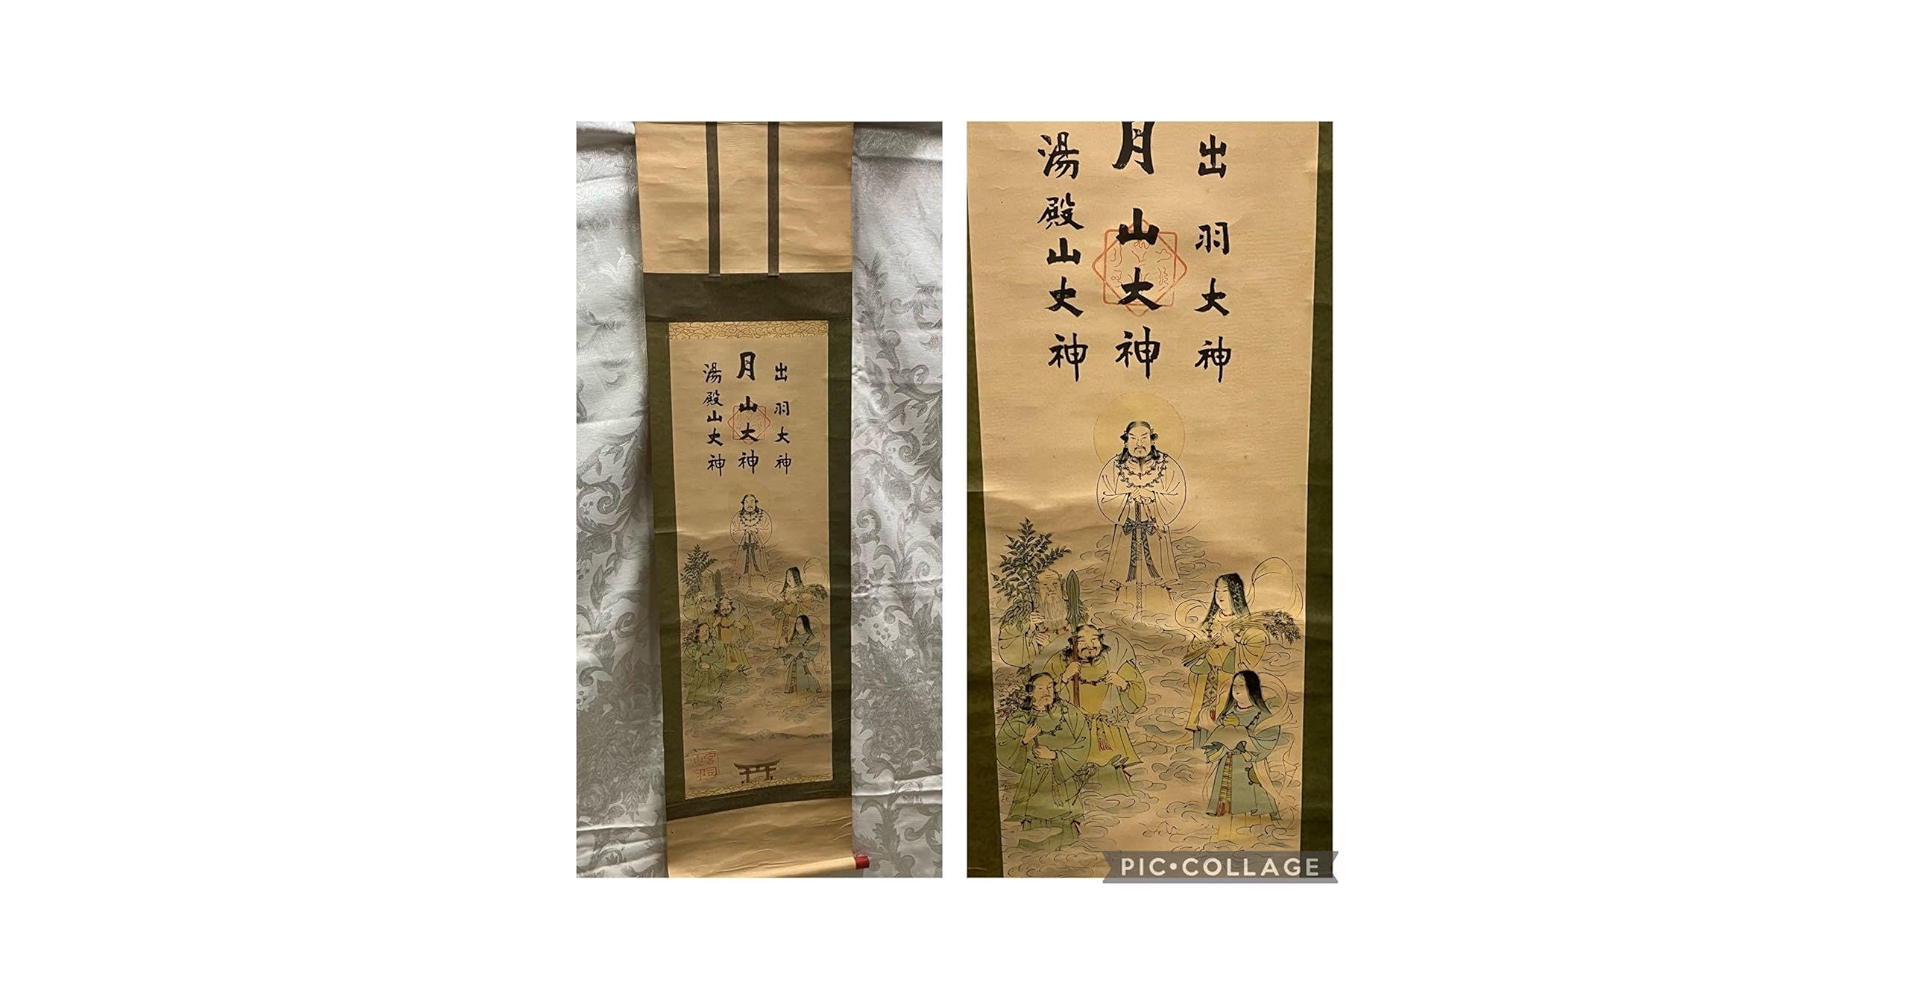 出羽大神
月山大神
湯殿山大神
出羽大神
月山大神
湯殿山大神
PIC•COLLAGE